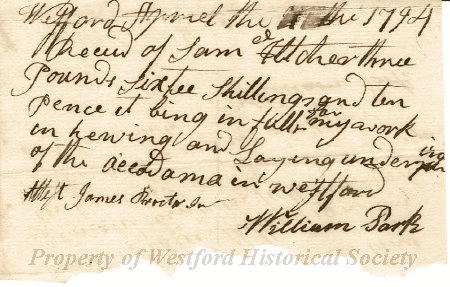 Westford Apriel the the 1794
Recud of Sam el Fletcher three
Pounds Sixtee Shillings and ten
Pence it being in full for my work
in hewing and Laying under
of the Accadama in westford
Attest James Procter Jur
William Park
Property of Westford Historical Society